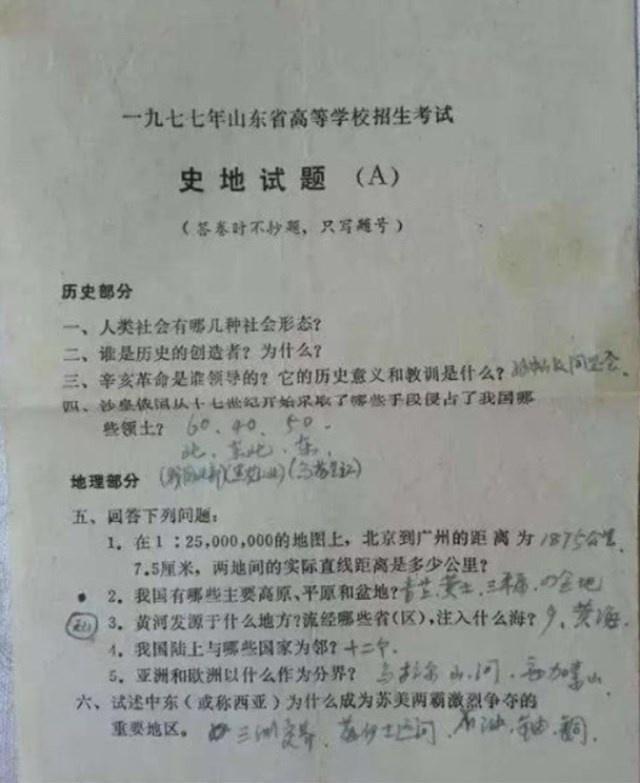 一九七七年山东省高等学校招生考试
史地试题（A）
（答卷时不抄题，只写题号）
历史部分
一、人类社会有哪几种社会形态？
二、谁是历史的创造者？为什么？
三、辛亥革命是谁领导的？它的历史意义和教训是什么？
四、沙皇俄国从十七世纪开始采取了哪些手段侵占了我国哪
些领土？ 60、40、50.
北、东北、东、
地理部分
五、回答下列问题：
1．在1：25,000,000的地图上，北京到广州的距离为 1875公里.
7.5厘米，两地间的实际直线距离是多少公里？
2．我国有哪些主要高原、平原和盆地？青藏、黄土、三平原、四盆地
3．黄河发源于什么地方？流经哪些省（区），注入什么海？9、黄海.
4．我国陆上与哪些国家为邻？十二个.
5．亚洲和欧洲以什么作为分界？乌拉尔山.河.高加索山.
六、试述中东（或称西亚）为什么成为苏美两霸激烈争夺的
重要地区。三洲交界 苏伊士运河、石油、铀、铜.